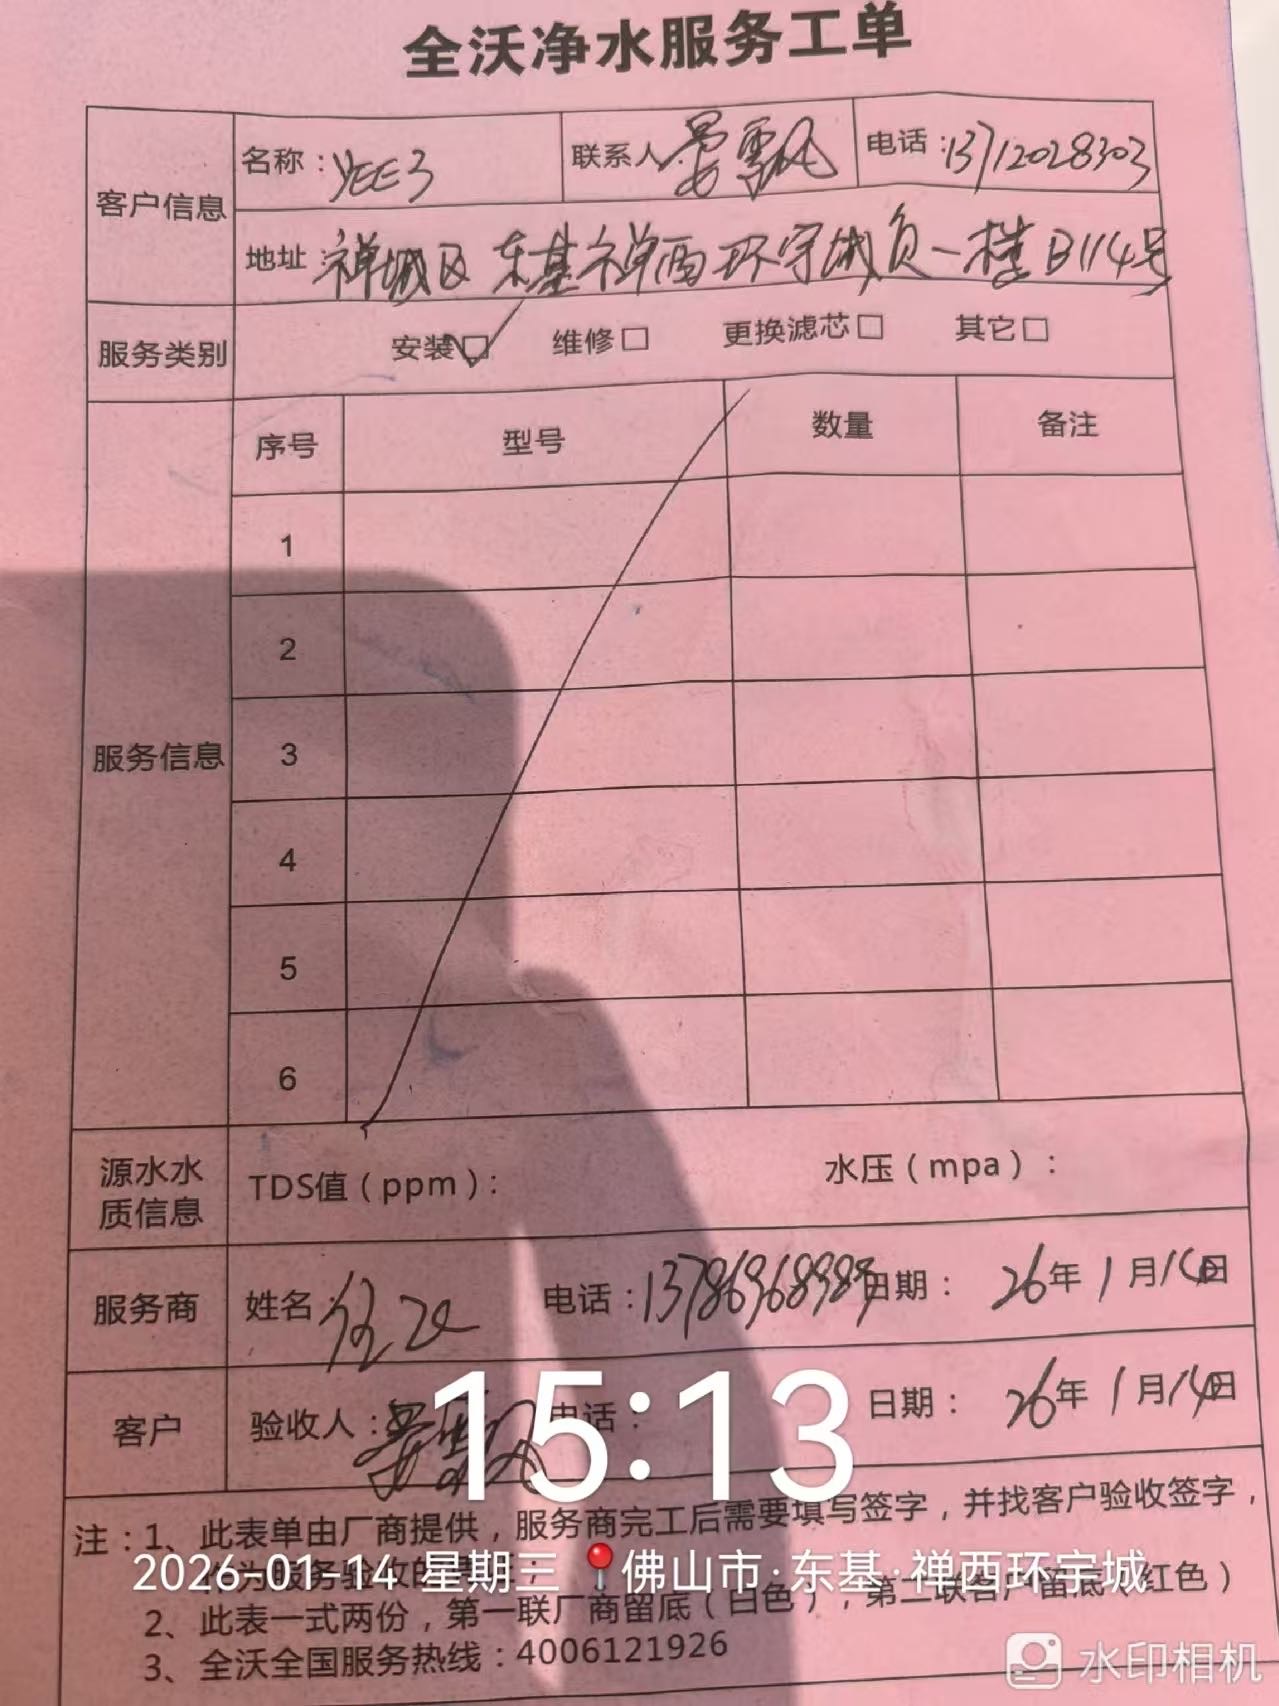 全沃净水服务工单
客户信息
名称：YEE3
联系人：晏飘
电话：13712028303
地址：禅城区东基禅西环宇城负一楼B114号
服务类别
安装☑ 维修□ 更换滤芯□ 其它□
服务信息
序号 型号 数量 备注
1
2
3
4
5
6
源水水质信息
TDS值（ppm）： 水压（mpa）：
服务商
姓名： 电话：13786968989 日期：26年1月14日
客户
验收人： 电话： 日期：26年1月14日
15:13
注：1、此表单由厂商提供，服务商完工后需要填写签字，并找客户验收签字，
为服务验收
2026-01-14 星期三 佛山市·东基·禅西环宇城
2、此表一式两份，第一联厂商留底（白色），第二联客户留底（红色）
3、全沃全国服务热线：4006121926
水印相机